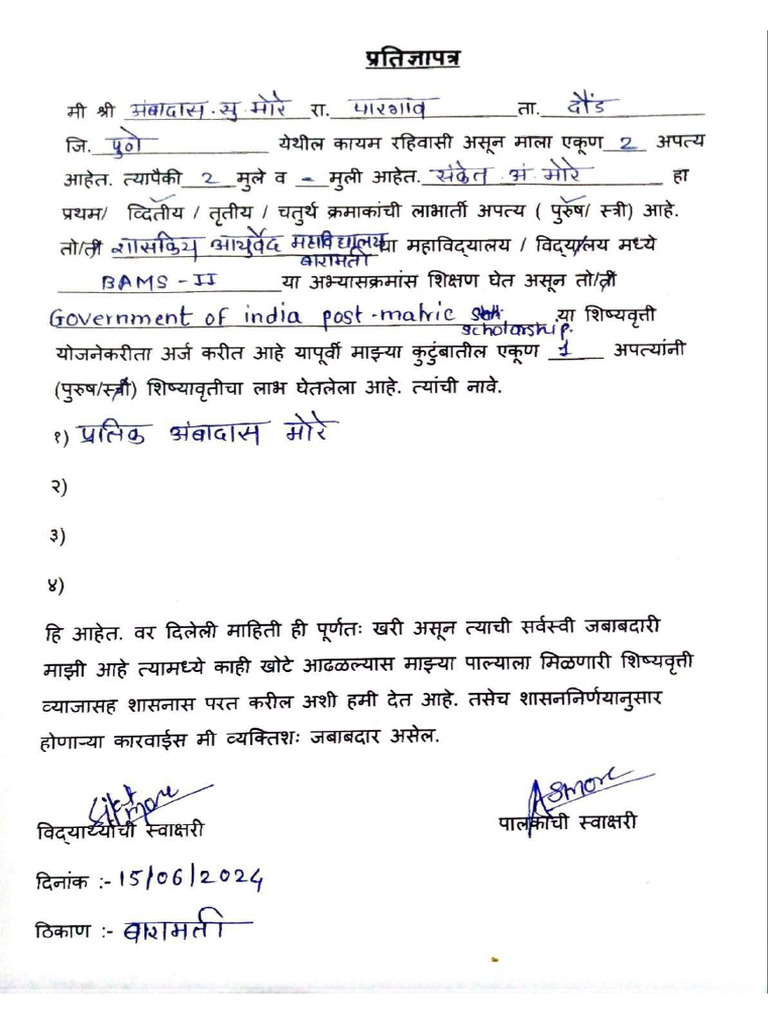 प्रतिज्ञापत्र
मी श्री अंबादास. सु. मोरे रा. पारगाव ता. दौंड
जि. पुणे येथील कायम रहिवासी असून माला एकूण 2 अपत्य
आहेत. त्यापैकी 2 मुले व - मुली आहेत. संकेत अं. मोरे हा
प्रथम/ व्दितीय / तृतीय / चतुर्थ क्रमाकांची लाभार्ती अपत्य ( पुरुष/ स्त्री) आहे.
तो/ती शासकिय आयुर्वेद महाविद्यालय बारामती या महाविद्यालय / विद्यालय मध्ये
BAMS - II या अभ्यासक्रमांस शिक्षण घेत असून तो/ती
Government of india post-matric scholarship. या शिष्यवृत्ती
योजनेकरीता अर्ज करीत आहे यापूर्वी माझ्या कुटुंबातील एकूण 1 अपत्यांनी
(पुरुष/स्त्री) शिष्यावृतीचा लाभ घेतलेला आहे. त्यांची नावे.
१) प्रतिक अंबादास मोरे
२)
३)
४)
हि आहेत. वर दिलेली माहिती ही पूर्णतः खरी असून त्याची सर्वस्वी जबाबदारी
माझी आहे त्यामध्ये काही खोटे आढळल्यास माझ्या पाल्याला मिळणारी शिष्यवृत्ती
व्याजासह शासनास परत करील अशी हमी देत आहे. तसेच शासननिर्णयानुसार
होणाऱ्या कारवाईस मी व्यक्तिशः जबाबदार असेल.
more ASmore
विद्यार्थ्याची स्वाक्षरी पालकांची स्वाक्षरी
दिनांक :- 15/06/2024
ठिकाण :- बारामती